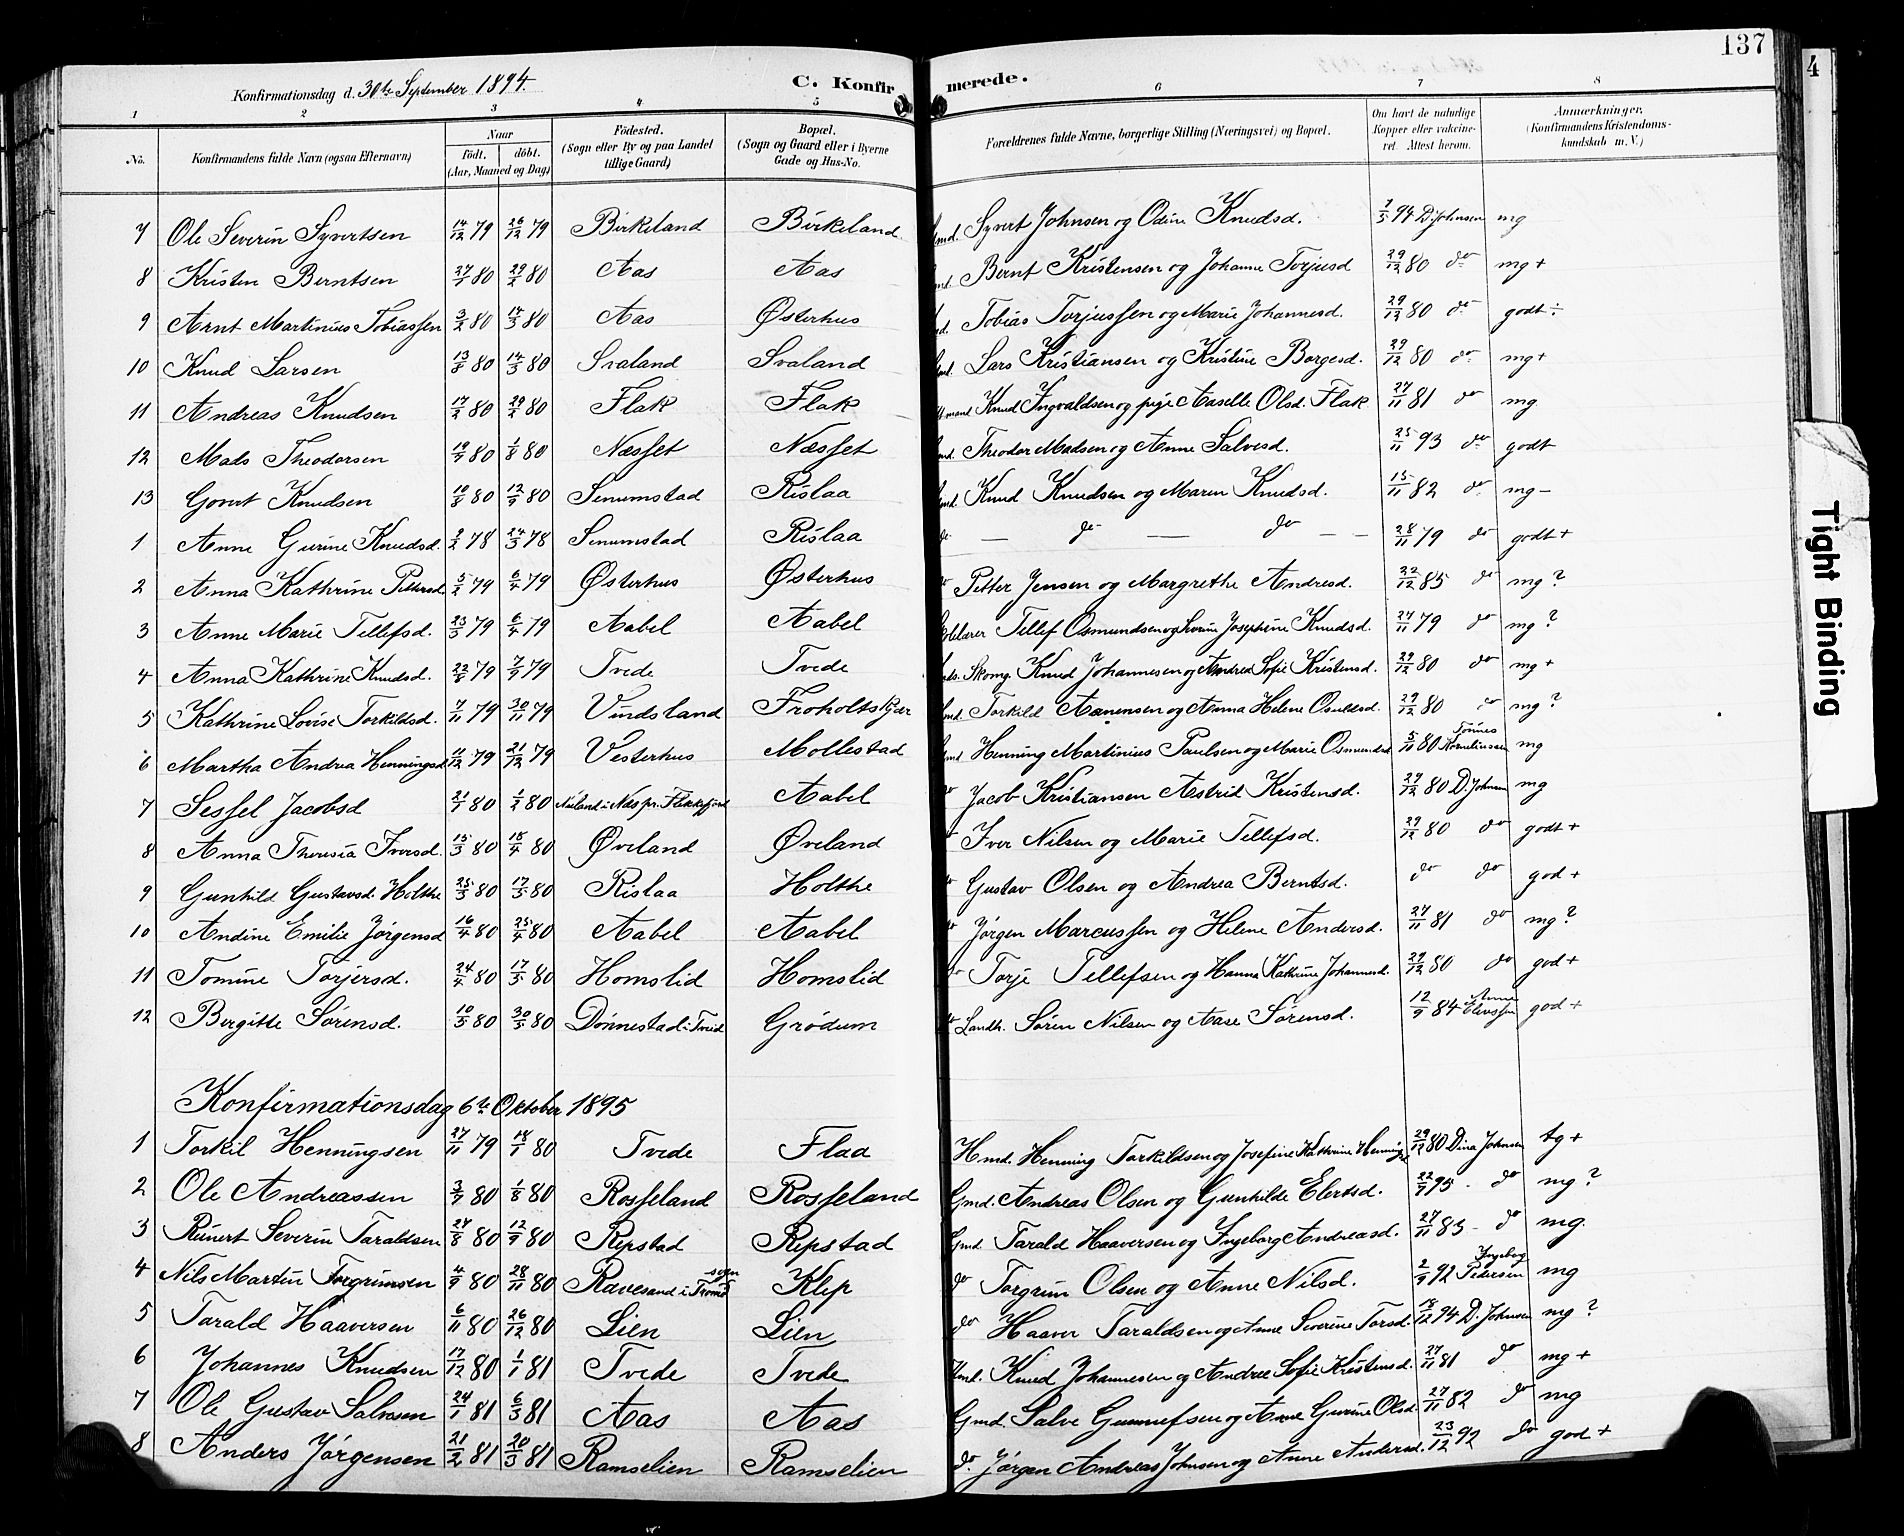 137
4
Konfirmationsdag d. 30te September 1894.
C. Konfirmerede.
1 2 3 4 5 6 7 8
No. Konfirmandens fulde Navn (ogsaa Efternavn) Naar födt. döbt. (Aar, Maaned og Dag) Födested. (Sogn eller By og paa Landet tillige Gaard) Bopæl. (Sogn og Gaard eller i Byerne Gade og Hus-No. Forældrenes fulde Navne, borgerlige Stilling (Næringsvei) og Bopæl. Om havt de naturlige Kopper eller vakcineret. Attest herom. Anmærkninger. (Konfirmandens Kristendomskundskab m. V.)
7 Ole Severin Syvertsen 14/12 79 26/12 79 Birkeland Birkeland Gmd. Syvert Johnsen og Odine Knudsd. 7/5 94 D. Johnsen mg
8 Kristen Berntsen 27/1 80 29/2 80 Aas Aas Bernt Kristensen og Johanne Torjusd 29/12 80 do mg+
9 Arnt Martinius Tobiassen 3/2 80 14/3 80 Aas Østerhus Tobias Torjussen og Marie Johannesd. 29/12 80 do godt÷
10 Knud Larsen 13/2 80 14/3 80 Svaland Svaland Lars Kristiansen og Kristine Borgesd. 29/12 80 do mg+
11 Andreas Knudsen 17/2 80 29/2 80 Flak Flak Knud Ingvaldsen og pige Aaselle Olsd. Flak 27/11 81 do mg
12 Mads Theodorsen 19/7 80 1/8 80 Næsset Næsset Theodor Madsen og Anne Salvesd. 25/11 93 do godt
13 Govert Knudsen 10/8 80 12/9 80 Senumstad Rislaa Gmd. Knud Knudsen og Maren Knudsd. 15/11 82 do mg-
1 Anne Gurine Knudsd. 2/2 78 24/3 78 Senumstad Rislaa do — do — do — — 28/11 79 do godt+
2 Anna Kathrine Pettersd 5/2 79 6/4 79 Østerhus Østerhus do Petter Jensen og Margrethe Andresd. 22/12 85 do mg?
3 Anne Marie Tellefsd. 23/3 79 6/4 79 Aabel Aabel Tellef Osmundsen og Severine Josephine Knudsd. 27/11 79 do mg?
4 Anna Kathrine Knudsd. 22/8 79 7/9 79 Tvede Tvede Skomg. Knud Johannesen og Andrea Sofie Kristensd. 29/12 80 do mg+
5 Kathrine Lovise Torkildsd. 7/11 79 30/11 79 Vindsland Froholtskjær Gmd. Torkild Aanensen og Anna Helene Osuldsd. 29/12 80 do mg?
6 Martha Andrea Henningsd 11/12 79 21/12 79 Vesterhus Mollestad Gmd Henning Martinius Paulsen og Marie Osmundsd 5/11 80 Tönnes Kornelinssen mg
7 Sessel Jacobsd 21/1 80 1/2 80 Næspr. Flekkefjord Aabel do Jacob Kristiansen Astrid Kristensd. 29/12 80 D. Johnsen mg
8 Anna Theresia Iversd. 15/3 80 18/4 80 Øveland Øveland Iver Nilsen og Marie Tellefsd. 29/12 80 do godt+
9 Gunhild Gustavsd. Holthe 25/3 80 17/5 80 Rislaa Holthe do Gustav Olsen og Andrea Berntsd. do do god+
10 Andine Emilie Jörgensd 16/4 80 25/4 80 Aabel Aabel do Jörgen Marcussen og Helene Andersd. 27/11 81 do mg?
11 Tomine Torjersd. 24/4 80 17/5 80 Homslid Homslid do Torje Tellefsen og Hanna Kathrine Johannesd. 29/12 80 do god+
12 Bergitte Sörensd. 10/5 80 30/5 80 Dönnestad i Tveid Grödum do Landh. Sören Nilsen og Aase Sörensd. 12/9 84 Anne god+
Konfirmationsdag 6te Oktober 1895
1 Torkil Henningsen 27/11 79 18/1 80 Tvede Flaa Hmd. Henning Torkildsen og Josefine Kathrine Henningsd 29/12 80 Dina Johnsen tg+
2 Ole Andreassen 3/7 80 1/8 80 Rosseland Rosseland Gmd. Andreas Olsen og Gunhilde Elertsd. 22/7 95 do mg?
3 Reinert Severin Taraldsen 24/8 80 12/9 80 Repstad Repstad Gmd. Tarald Haaversen og Ingeborg Andreasd. 27/11 83 do mg.
4 Nils Martin Torgrimsen 4/9 80 28/11 80 Ravesand i Tromö sogn Klep do Torgrim Olsen og Anne Nilsd. 2/9 92 Ingeborg Pedersen mg
5 Tarald Haaversen 6/11 80 26/12 80 Lien Lien do Haaver Taraldsen og Anne Severine Torsd. 18/12 94 D. Johnsen mg?
6 Johannes Knudsen 17/12 80 1/1 81 Tvede Tvede Knud Johannesen og Andrea Sofie Kristensd. 27/11 81 do mg+
7 Ole Gustav Salvesen 24/1 81 6/3 81 Aas Aas Gmd. Salve Gunnufsen og Anne Gurine Olsd. 27/11 82 do mg
8 Anders Jörgensen 21/2 81 20/3 81 Ramselien Ramselien do. Jörgen Andreas Johnsen og Anne Andersd. 23/12 92 do god+
Tight Binding